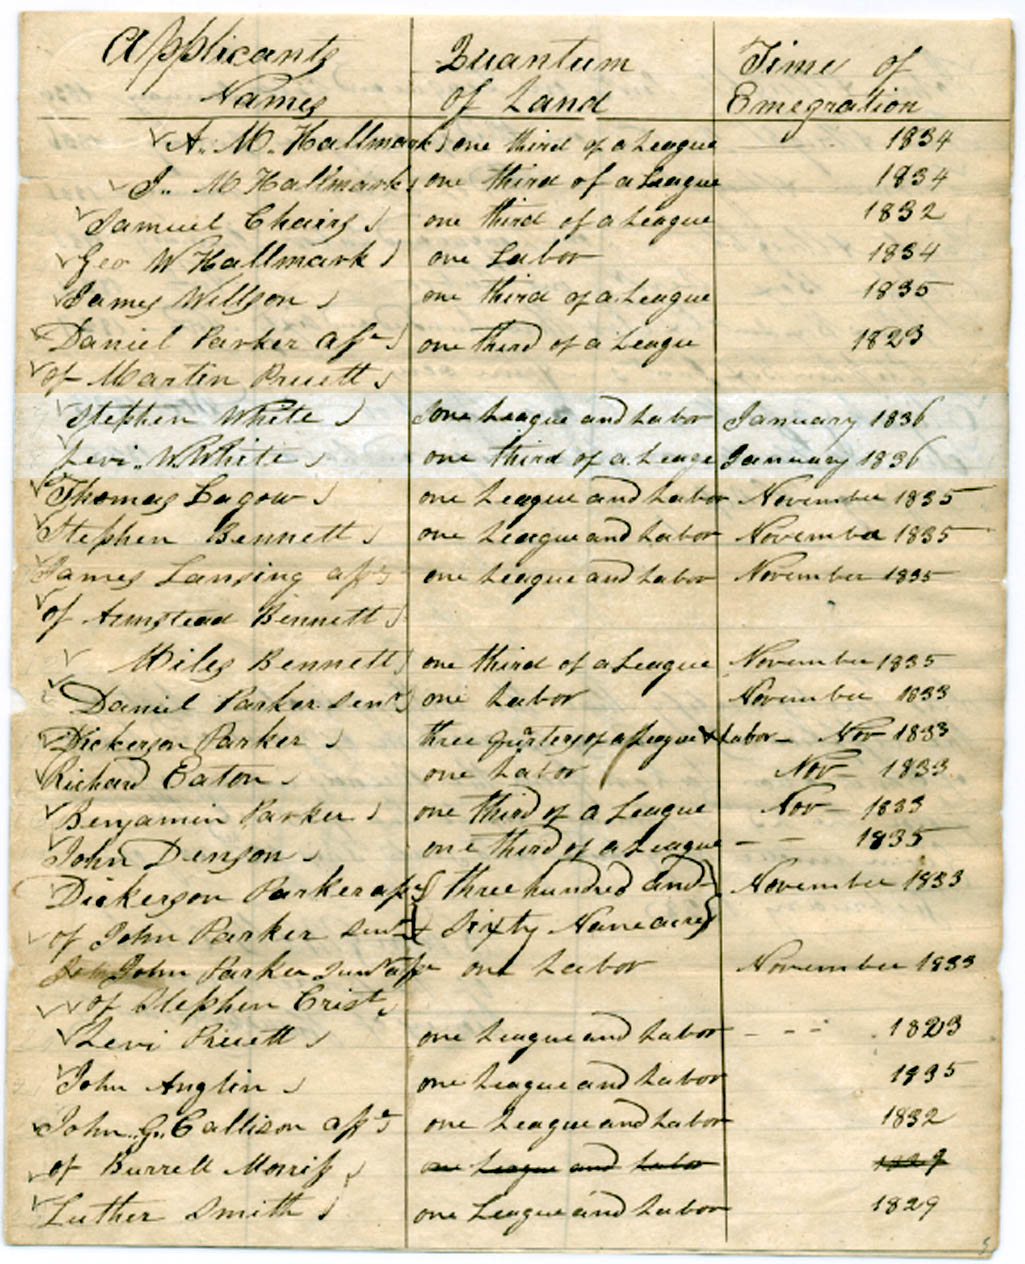 Applicants Quantum Time of
Names of Land Emegration
A.. M. Hallmark) one third of a League 1834
J.. M Hallmark) one third of a League 1834
Samuel Chairs) one third of a League 1832
Geo W Hallmark) one Labor 1834
James Willson) one third of a League 1835
Daniel Parker asse) one third of a League 1823
of Martin Pruett)
Stephen White) one League and Labor January 1836
Levi.. W. White) one third of a League January 1836
Thomas Lagow) one League and Labor November 1835
Stephen Bennett) one League and Labor November 1835
James Lansing asse one League and Labor November 1835
of Armstead Bennett)
Miles Bennett) one third of a League November 1835
Daniel Parker Senr) one Labor November 1833
Dickerson Parker) three qurters of a League & Labor - Nov 1833
Richard Eaton) one Labor Nov - 1833
Benjamin Parker) one third of a League Nov - 1833
John Denson) one third of a League - - 1835
Dickerson Parker asse { three hundred and } November 1833
of John Parker Senr { & Sixty Nane acres }
John Parker Senr asse one Labor November 1833
of Stephen Crist)
Levi Pruett) one League and Labor - - - 1823
John Anglin) one League and Labor 1835
John.. G.. Callison asse one League and Labor 1832
of Burrell Morriss) one League and Labor 1829
Luther Smith) one League and Labor 1829